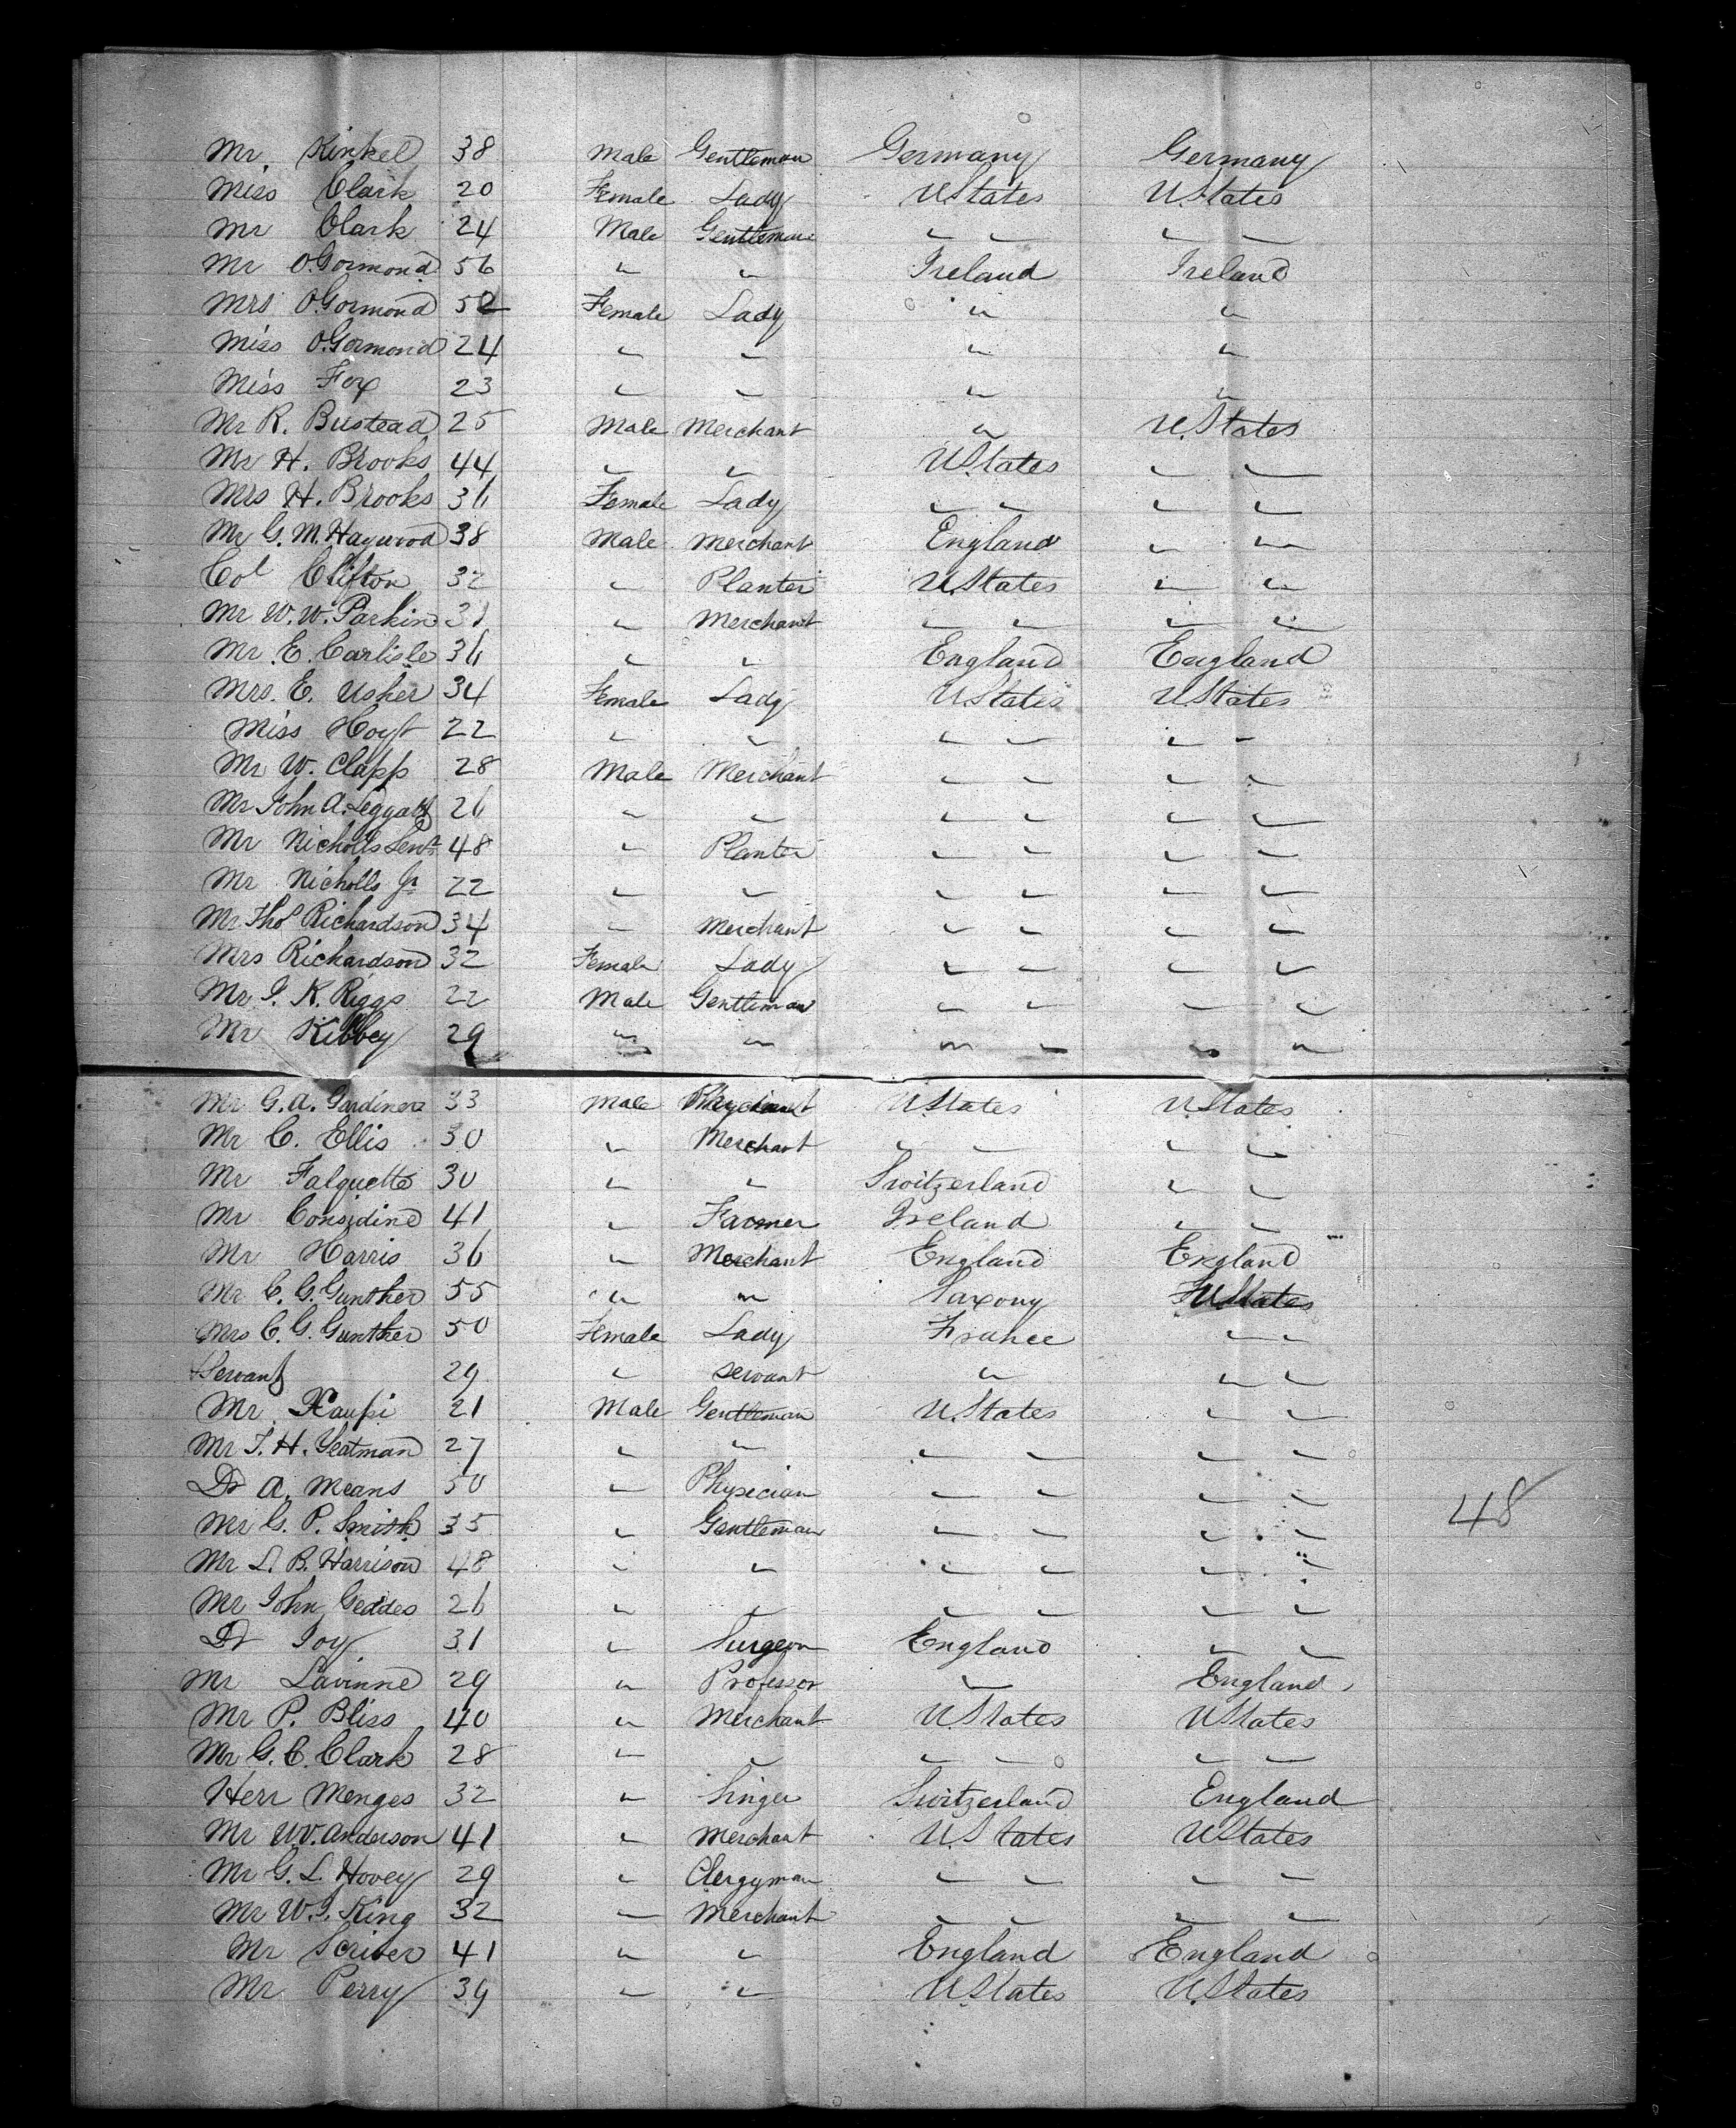 Mr. Kinkel 38 Male Gentleman Germany Germany
Miss Clark 20 Female Lady UStates UStates
Mr Clark 24 Male Gentleman " " " "
Mr O.Gormond 56 " " Ireland Ireland
Mrs O.Gormond 52 Female Lady " "
Miss O.Gormond 24 " " " "
Miss Fox 23 " " " "
Mr R. Bustead 25 Male Merchant " U.States
Mr H. Brooks 44 " " U.States " "
Mrs H. Brooks 36 Female Lady " " " "
Mr G. M. Haywood 38 Male Merchant England " "
Col Clifton 32 " Planter U.States " "
Mr W. W. Parkin 31 " Merchant " " " "
Mr. E. Carlisle 36 " " England England
Mrs. E. Usher 34 Female Lady UStates UStates
Miss Hoyt 22 " " " " " "
Mr W. Clapp 28 Male Merchant " " " "
Mr John A. 26 " " " " " "
Mr Nicholls Senr 48 " Planter " " " "
Mr Nicholls Jr 22 " " " " " "
Mr Thos Richardson 34 " Merchant " " " "
Mrs Richardson 32 Female Lady " " " "
Mr J. K. Riggs 22 Male Gentleman " " " "
Mr Kibbey 29 " " " " " "
Mr G. A. Gardiner 33 Male UStates U.States
Mr C. Ellis 30 " Merchant " " " "
Mr Falquette 30 " " Switzerland " "
Mr Considine 41 " Farmer Ireland " "
Mr Harris 36 " Merchant England England
Mr C. G. Gunther 55 " " Saxony UStates
Mrs C. G. Gunther 50 Female Lady France " "
Servant 29 " servant " " "
Mr 21 Male Gentleman U.States " "
Mr T. H. Yeatman 27 " " " " " "
Dr A. Means 50 " Physician " " " "
Mr G. P. Smith 35 " Gentleman " " " "
48
Mr L. B. Harrison 48 " " " " " "
Mr John Geddes 26 " " " " " "
Dr Joy 31 " Surgeon England " "
Mr Lavinne 29 " Professor " England
Mr P. Bliss 40 " Merchant U.States UStates
Mr G. C. Clark 28 " " " " " "
Herr Menges 32 " Singer Switzerland England
Mr W. Anderson 41 " Merchant U.States UStates
Mr G. L. Hovey 29 " Clergyman " " " "
Mr W. J. King 32 " Merchant " " " "
Mr Scriver 41 " " England England
Mr Perry 39 " " U.States U.States